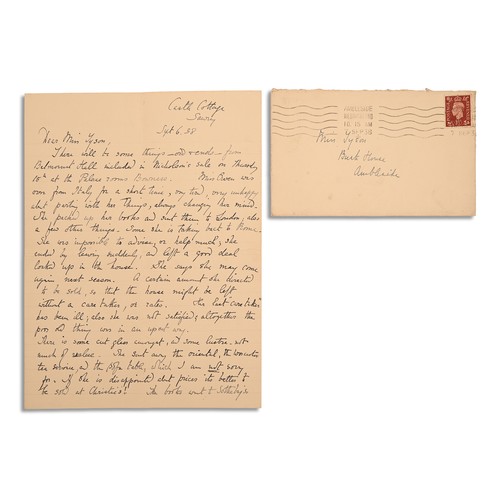 Castle Cottage
Sawrey
Sept 6. 38
Dear Miss Tyson,
There will be some things - odds & ends - from
Belmount Hall included in Nicholson's sale on Thursday
15th at the Palace rooms Bowness. Miss Owen was
over from Italy for a short time, very tired, very unhappy
about parting with her things, always changing her mind.
She packed up his books and sent them to London, also
a few other things. Some she is taking back to Rome.
She was impossible to advise, or help much; she
ended by leaving suddenly, and left a good deal
locked up in the house. She says she may come
again next season. A certain amount she directed
to be sold, so that the house might be left
without a care taker, or rates. The last care taker
has been ill; also she was not satisfied; altogether the
poor old thing was in an upset way.
There is some cut glass amongst, and some lustre, not
much of value. She sent away the oriental, the Worcester
tea service and the table, which I am not sorry
for. If she is disappointed about prices its better to
be sold at Christie's! The books went to Sotheby's
AMBLESIDE
Miss Tyson
Bark House
Ambleside